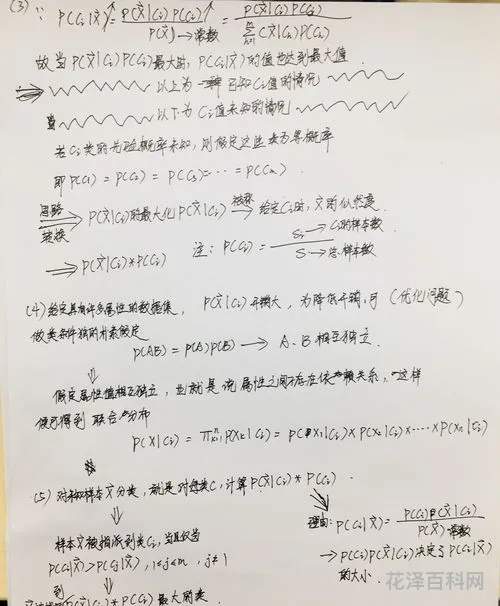 (3) ∵ P(Ci|X)↑ = P(X|Ci)P(Ci)↑ / P(X)→常数 = P(X|Ci)P(Ci) / Σ C(X|Ci)P(Ci)
故当P(X|Ci)P(Ci)最大时, P(Ci|X)的值也达到最大值
以上为 已知Ci值的情况
以下为Ci值未知的情况
若Ci类的先验概率未知, 则假定这些类为等概率
即P(C1) = P(C2) = P(C3) = ··· = P(Cm)
思路转换 P(X|Ci)的最大化P(X|Ci) 转换 给定Ci时, X的似然度
⇒ P(X|Ci)*P(Ci) 注: P(Ci) = Si→Ci的样本数 / S→总样本数
(4) 给定具有许多属性的数据集, P(X|Ci)开销大, 为降低开销, 可 (优化问题)
做类条件独立朴素假定
P(AB) = P(A)P(B) → A、B相互独立.
假定属性值相互独立, 也就是说属性之间不存在依赖关系, 这样
便可得到 联合分布
P(X|Ci) = P(Xk|Ci) = P(X1|Ci) × P(X2|Ci) × ····· × P(Xn|Ci)
(5) 对未知样本X分类, 就是对每类Ci, 计算P(X|Ci) * P(Ci).
理由: P(Ci|X) = P(Ci)P(X|Ci) / P(X) 常数
样本X被指派到类Ci, 当且仅当
P(Ci|X) > P(Cj|X), 1≤j≤m, j≠i
→ P(Ci)P(X|Ci)决定了P(Ci|X)
的大小.
到
P(X|Ci) * P(Ci) 最大的类.
花泽百科网